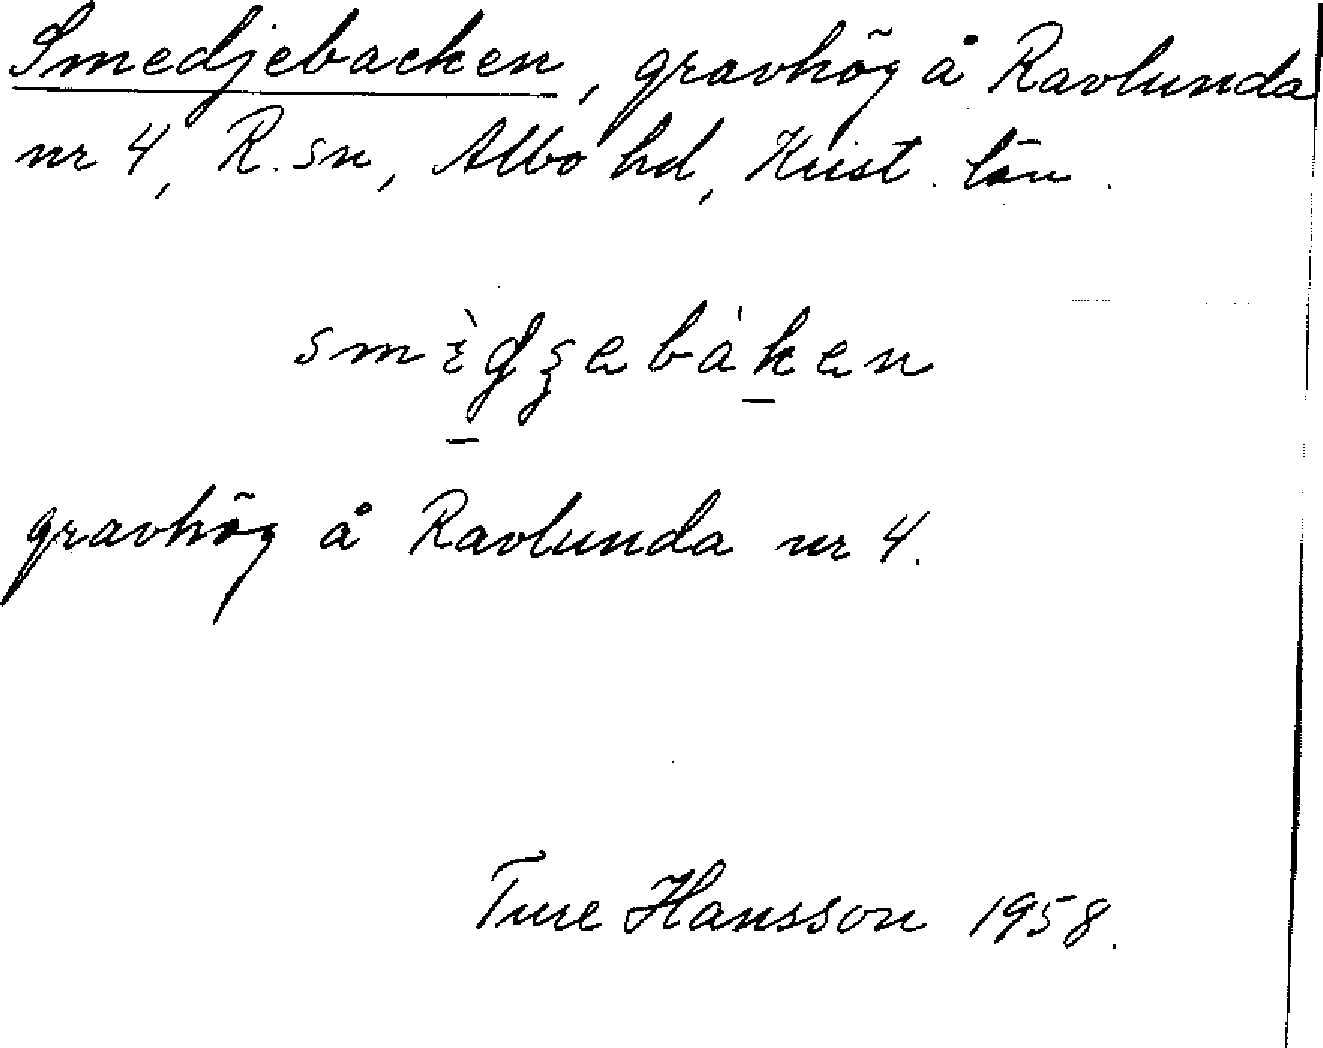 Smedjebacken, gravhög å Ravlunda
nr 4, R. sn, Albo hd, Krist. län.
gravhög å Ravlunda nr 4.
Ture Hansson 1958.